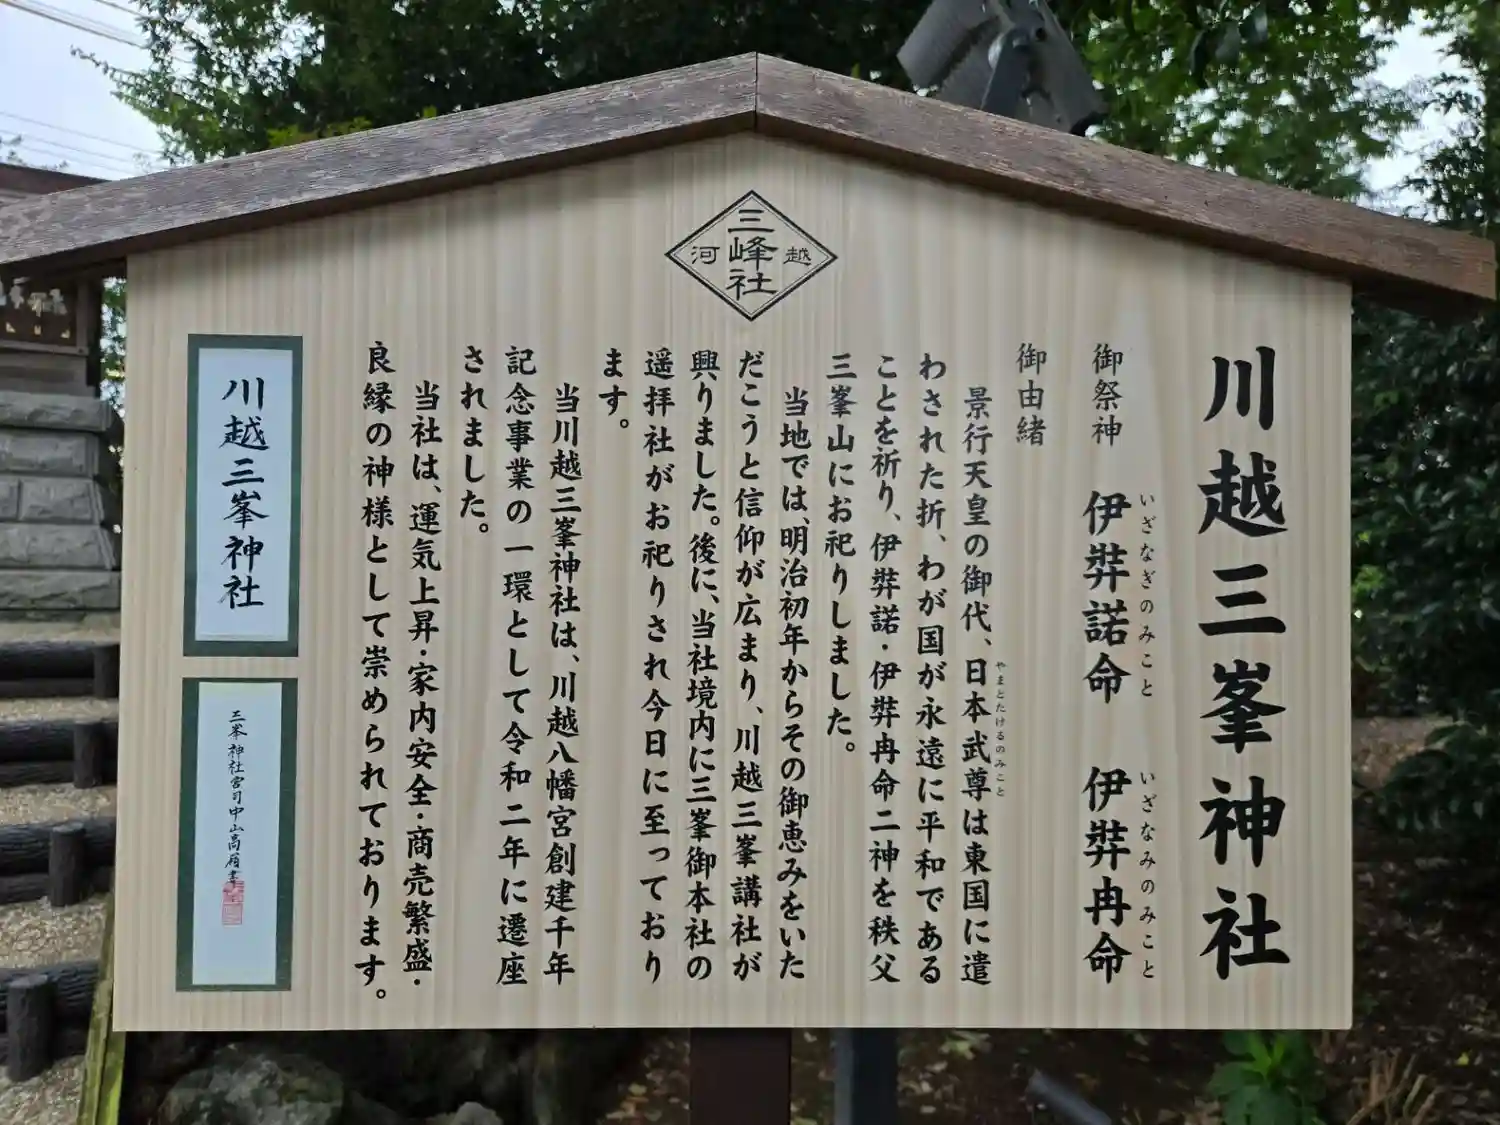 三峰社
河越
川越三峯神社
いざなぎのみこと　いざなみのみこと
御祭神　伊弉諾命　伊弉冉命
御由緒
やまとたけるのみこと
景行天皇の御代、日本武尊は東国に遣
わされた折、わが国が永遠に平和である
ことを祈り、伊弉諾・伊弉冉命二神を秩父
三峯山にお祀りしました。
当地では、明治初年からその御恵みをいた
だこうと信仰が広まり、川越三峯講社が
興りました。後に、当社境内に三峯御本社の
遥拝社がお祀りされ今日に至っており
ます。
当川越三峯神社は、川越八幡宮創建千年
記念事業の一環として令和二年に遷座
されました。
当社は、運気上昇・家内安全・商売繁盛・
良縁の神様として崇められております。
川越三峯神社
三峯神社宮司中山高嶺書